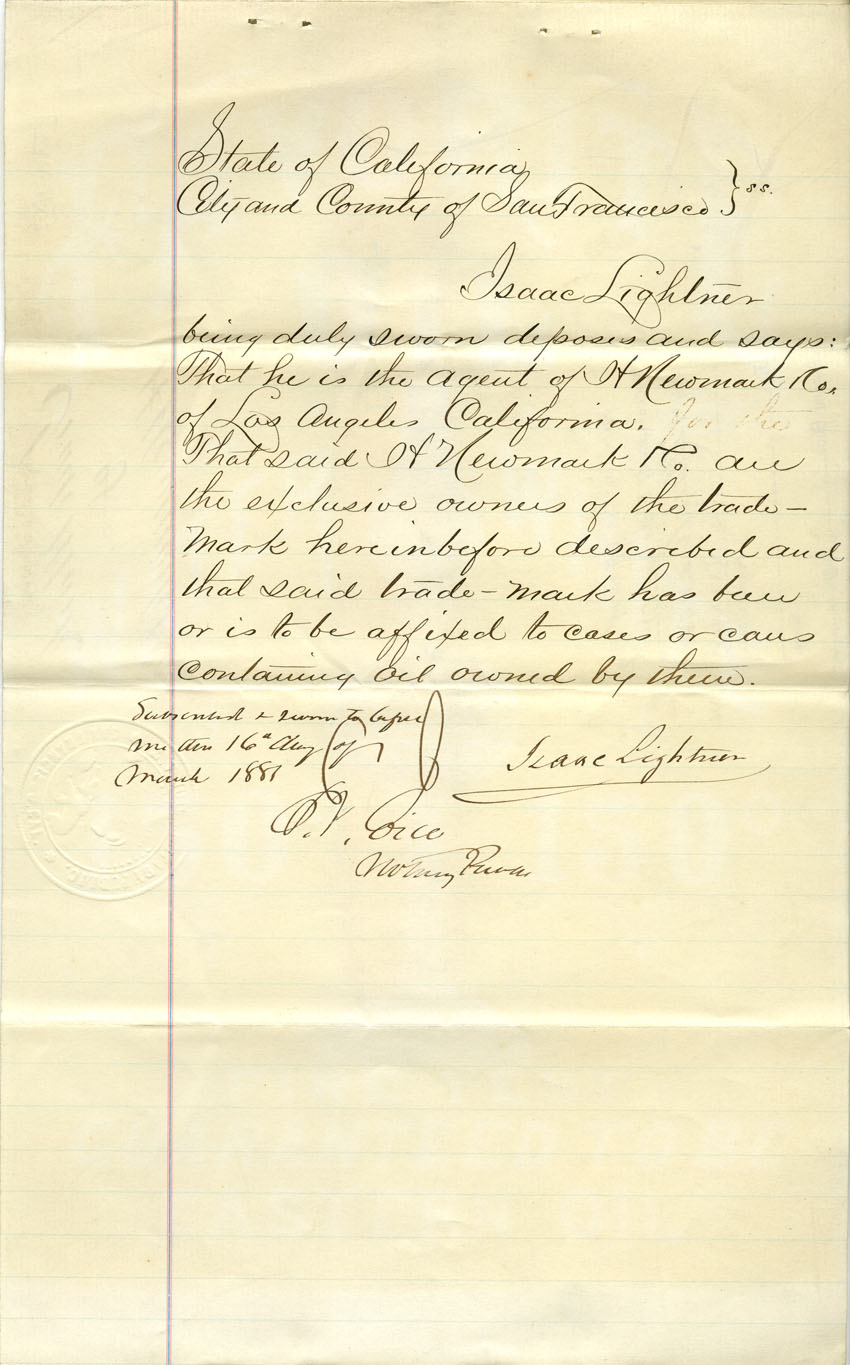 State of California
City and County of San Francisco } ss.
Isaac Lightner
being duly sworn deposes and says:
That he is the agent of H Newmark & Co.
of Los Angeles California. for the
That said H Newmark & Co. are
the exclusive owners of the trade-
mark hereinbefore described and
that said trade-mark has been
or is to be affixed to cases or cans
containing oil owned by them.
Subscribed & sworn to before
me this 16th day of
March 1881
Isaac Lightner
Notary Public